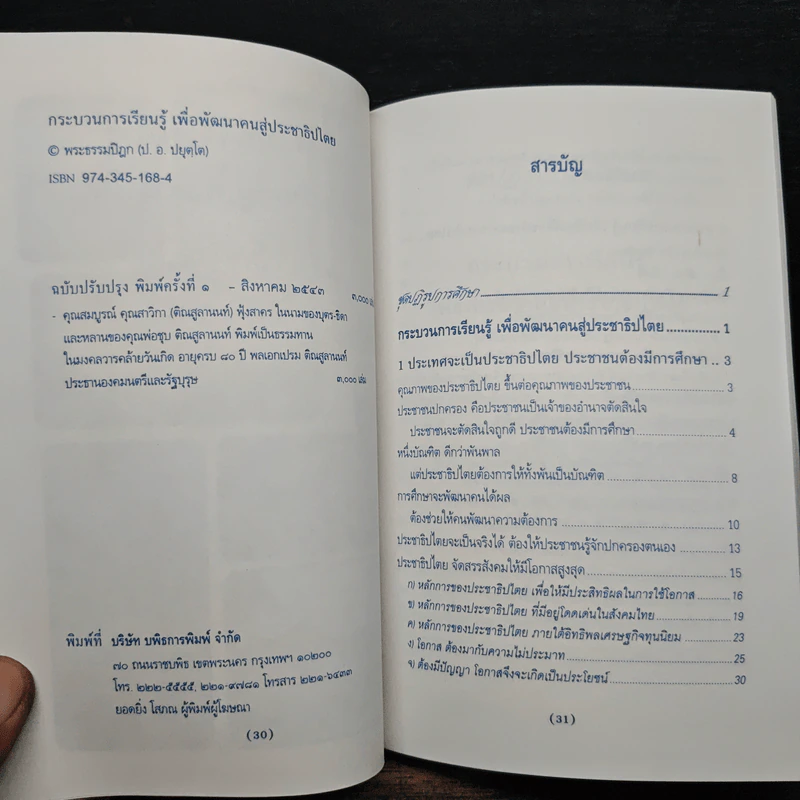 กระบวนการเรียนรู้ เพื่อพัฒนาคนสู่ประชาธิปไตย
© พระธรรมปิฎก (ป. อ. ปยุตฺโต)
ISBN 974-345-168-4
ฉบับปรับปรุง พิมพ์ครั้งที่ ๑ – สิงหาคม ๒๕๔๓ ๓,๐๐๐ เล่ม
- คุณสมบูรณ์ คุณสาวิกา (ติณสูลานนท์) ฟุ้งสาคร ในนามของบุตร-ธิดา
และหลานของคุณพ่อชุบ ติณสูลานนท์ พิมพ์เป็นธรรมทาน
ในมงคลวารคล้ายวันเกิด อายุครบ ๘๐ ปี พลเอกเปรม ติณสูลานนท์
ประธานองคมนตรีและรัฐบุรุษ ๓,๐๐๐ เล่ม
พิมพ์ที่ บริษัท บพิธการพิมพ์ จำกัด
๗๐ ถนนราชบพิธ เขตพระนคร กรุงเทพฯ ๑๐๒๐๐
โทร. ๒๒๒-๕๕๕๕, ๒๒๑-๙๗๘๑ โทรสาร ๒๒๑-๖๔๓๓
ยอดยิ่ง โสภณ ผู้พิมพ์ผู้โฆษณา
(30)
สารบัญ
ชุดปฏิรูปการศึกษา.......... 1
กระบวนการเรียนรู้ เพื่อพัฒนาคนสู่ประชาธิปไตย .......... 1
1 ประเทศจะเป็นประชาธิปไตย ประชาชนต้องมีการศึกษา .. 3
คุณภาพของประชาธิปไตย ขึ้นต่อคุณภาพของประชาชน .......... 3
ประชาชนปกครอง คือประชาชนเป็นเจ้าของอำนาจตัดสินใจ
ประชาชนจะตัดสินใจถูกดี ประชาชนต้องมีการศึกษา .......... 4
หนึ่งบัณฑิต ดีกว่าพันพาล
แต่ประชาธิปไตยต้องการให้ทั้งพันเป็นบัณฑิต .......... 8
การศึกษาจะพัฒนาคนได้ผล
ต้องช่วยให้คนพัฒนาความต้องการ .......... 10
ประชาธิปไตยจะเป็นจริงได้ ต้องให้ประชาชนรู้จักปกครองตนเอง .......... 13
ประชาธิปไตย จัดสรรสังคมให้มีโอกาสสูงสุด .......... 15
ก) หลักการของประชาธิปไตย เพื่อให้มีประสิทธิผลในการใช้โอกาส .......... 16
ข) หลักการของประชาธิปไตย ที่มีอยู่โดดเด่นในสังคมไทย .......... 19
ค) หลักการของประชาธิปไตย ภายใต้อิทธิพลเศรษฐกิจทุนนิยม .......... 23
ง) โอกาส ต้องมากับความไม่ประมาท .......... 25
จ) ต้องมีปัญญา โอกาสจึงจะเกิดเป็นประโยชน์ .......... 30
(31)